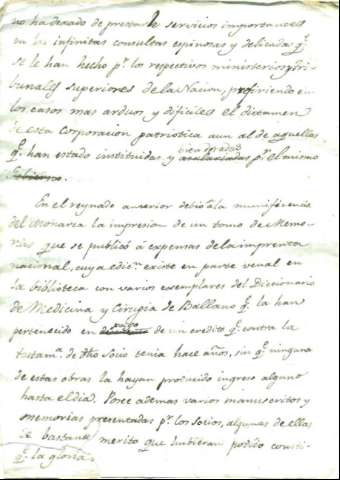 no ha dexado de prestarle servicios importantes
en las infinitas consultas espinosas y delicadas q.e
se le han hecho p.r los respectivos ministerios y tri-
bunales superiores de la Nacion, prefiriendo en
los casos mas arduos y dificiles el dictamen
de esta Corporacion patriotica aun al de aquellas
q.e han estado instituidas y bien dotadas p.r el mismo
Gobierno.
En el reynado anterior debió a la munificencia
del Monarca la impresion de un tomo de Memo-
rias que se publicó á expensas de la imprenta
nacional, cuya edic.n existe en parte venal en
la biblioteca con varios exemplares del Diccionario
de Medicina y Cirugia de Ballano q.e la han
pertenecido en pago de un credito q.e contra la
testam.a de dho Socio tenia hace años, sin q.e ninguna
de estas obras la hayan producido ingreso alguno
hasta el dia. Posee ademas varios manuscritos y
memorias presentadas p.r los socios, algunas de ellas
de bastante merito que hubieran podido consti-
q.e la gloria